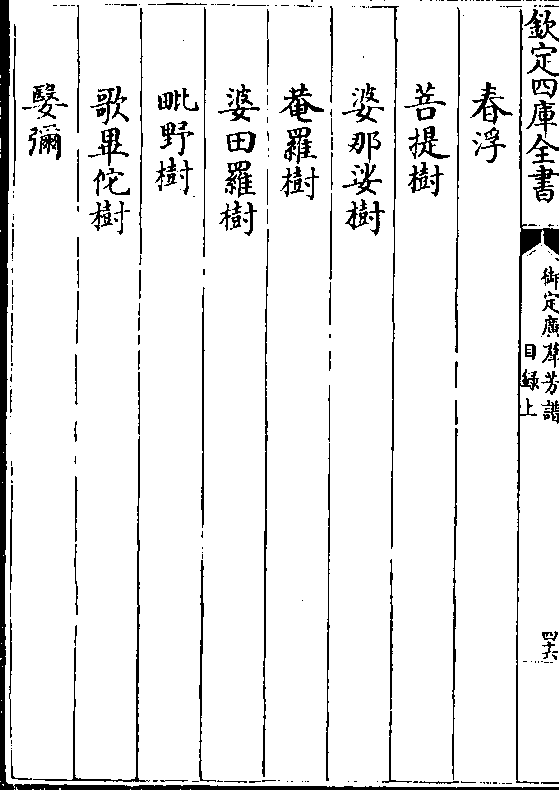 欽定四庫全書
御定廣羣芳譜
目録上
四十六
春浮
菩提樹
婆那娑樹
菴羅樹
婆田羅樹
毗野樹
歌畢佗樹
鷖彌